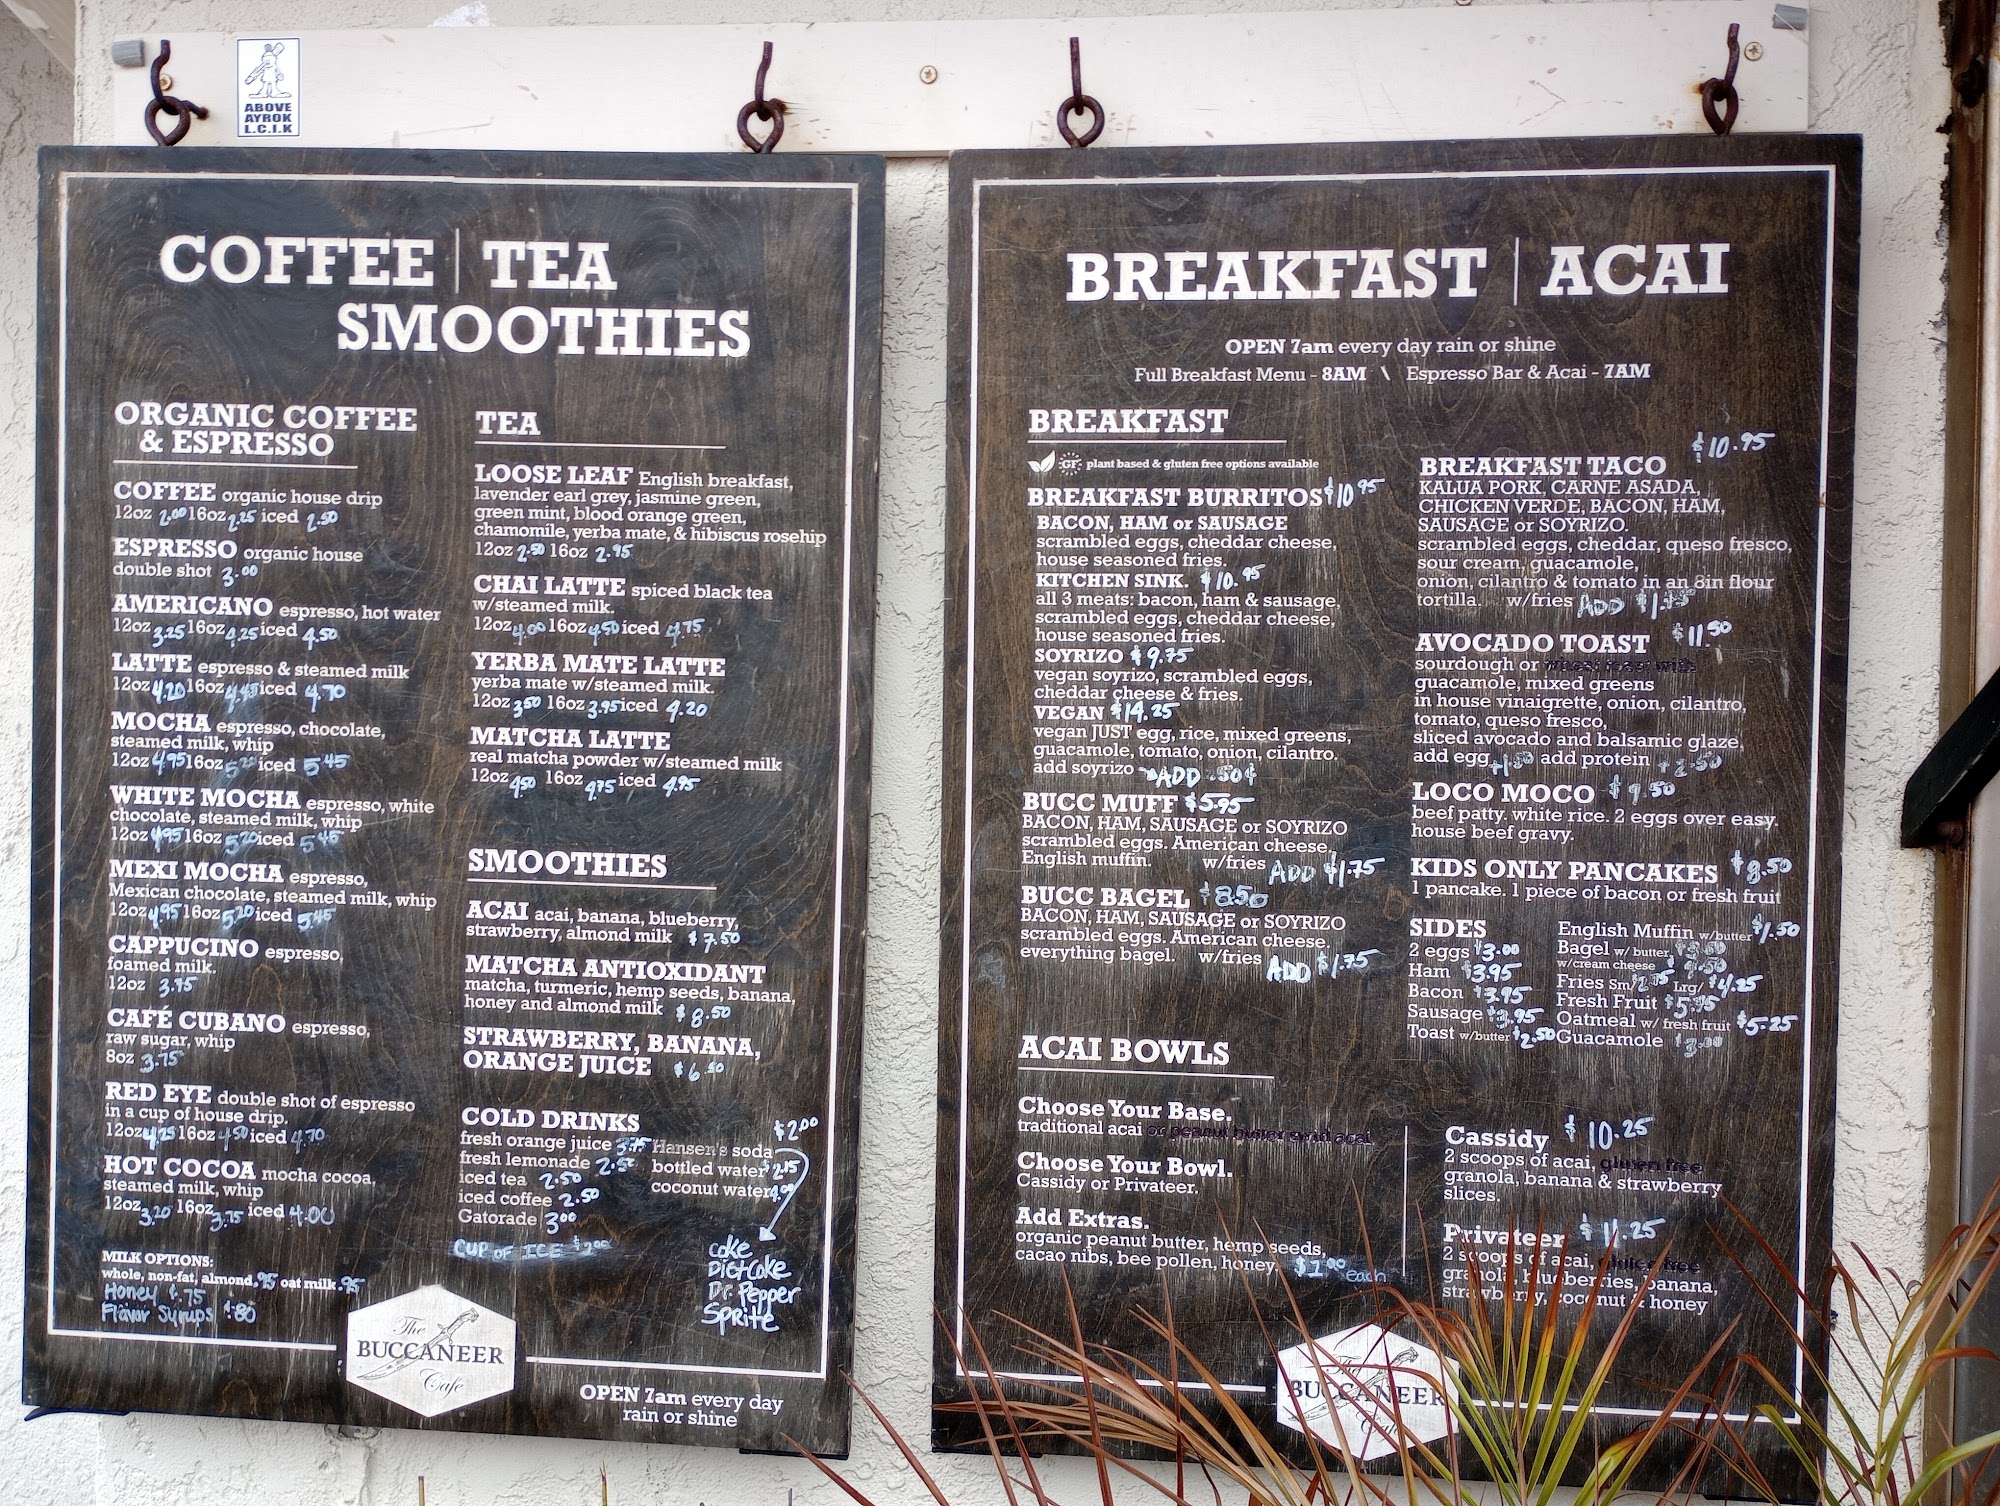 ABOVE
AYROK
L.C.I.K
COFFEE | TEA
SMOOTHIES
ORGANIC COFFEE
& ESPRESSO
COFFEE organic house drip
12oz 2.00 16oz 2.25 iced 2.50
ESPRESSO organic house
double shot 3.00
AMERICANO espresso, hot water
12oz 3.25 16oz 4.25 iced 4.50
LATTE espresso & steamed milk
12oz 4.20 16oz 4.45 iced 4.70
MOCHA espresso, chocolate,
steamed milk, whip
12oz 4.95 16oz 5.20 iced 5.45
WHITE MOCHA espresso, white
chocolate, steamed milk, whip
12oz 4.95 16oz 5.20 iced 5.45
MEXI MOCHA espresso,
Mexican chocolate, steamed milk, whip
12oz 4.95 16oz 5.20 iced 5.45
CAPPUCINO espresso,
foamed milk.
12oz 3.75
CAFÉ CUBANO espresso,
raw sugar, whip
8oz 3.75
RED EYE double shot of espresso
in a cup of house drip.
12oz 4.25 16oz 4.50 iced 4.70
HOT COCOA mocha cocoa,
steamed milk, whip
12oz 3.20 16oz 3.75 iced 4.00
MILK OPTIONS:
whole, non-fat, almond .95 oat milk .95
Honey $.75
Flavor Syrups $.80
TEA
LOOSE LEAF English breakfast,
lavender earl grey, jasmine green,
green mint, blood orange green,
chamomile, yerba mate, & hibiscus rosehip
12oz 2.50 16oz 2.95
CHAI LATTE spiced black tea
w/steamed milk.
12oz 4.00 16oz 4.50 iced 4.75
YERBA MATE LATTE
yerba mate w/steamed milk.
12oz 3.50 16oz 3.95 iced 4.20
MATCHA LATTE
real matcha powder w/steamed milk
12oz 4.50 16oz 4.75 iced 4.95
SMOOTHIES
ACAI acai, banana, blueberry,
strawberry, almond milk $7.50
MATCHA ANTIOXIDANT
matcha, turmeric, hemp seeds, banana,
honey and almond milk $8.50
STRAWBERRY, BANANA,
ORANGE JUICE $6.50
COLD DRINKS
fresh orange juice 3.75
fresh lemonade 2.50
iced tea 2.50
iced coffee 2.50
Gatorade 3.00
CUP OF ICE $2.00
$2.00
Hansen's soda
bottled water $2.15
coconut water 4.00
Coke
Diet Coke
Dr. Pepper
Sprite
The
BUCCANEER
Cafe
OPEN 7am every day
rain or shine
BREAKFAST | ACAI
OPEN 7am every day rain or shine
Full Breakfast Menu - 8AM \ Espresso Bar & Acai - 7AM
BREAKFAST
GF plant based & gluten free options available
BREAKFAST BURRITOS $10.95
BACON, HAM or SAUSAGE
scrambled eggs, cheddar cheese,
house seasoned fries.
KITCHEN SINK. $10.95
all 3 meats: bacon, ham & sausage,
scrambled eggs, cheddar cheese,
house seasoned fries.
SOYRIZO $9.75
vegan soyrizo, scrambled eggs,
cheddar cheese & fries.
VEGAN $14.25
vegan JUST egg, rice, mixed greens,
guacamole, tomato, onion, cilantro.
add soyrizo ADD .50¢
BUCC MUFF $5.95
BACON, HAM, SAUSAGE or SOYRIZO
scrambled eggs. American cheese.
English muffin. w/fries ADD $1.75
BUCC BAGEL $8.50
BACON, HAM, SAUSAGE or SOYRIZO
scrambled eggs. American cheese.
everything bagel. w/fries ADD $1.75
$10.95
BREAKFAST TACO
KALUA PORK, CARNE ASADA,
CHICKEN VERDE, BACON, HAM,
SAUSAGE or SOYRIZO.
scrambled eggs, cheddar, queso fresco,
sour cream, guacamole,
onion, cilantro & tomato in an 8in flour
tortilla. w/fries ADD $1.75
AVOCADO TOAST $11.50
sourdough or wheat toast with
guacamole, mixed greens
in house vinaigrette, onion, cilantro,
tomato, queso fresco,
sliced avocado and balsamic glaze,
add egg +1.50 add protein +2.50
LOCO MOCO $9.50
beef patty. white rice. 2 eggs over easy.
house beef gravy.
KIDS ONLY PANCAKES $8.50
1 pancake. 1 piece of bacon or fresh fruit
SIDES
2 eggs $3.00
Ham $3.95
Bacon $3.95
Sausage $3.95
Toast w/butter $2.50
English Muffin w/butter $1.50
Bagel w/ butter $3.50
w/cream cheese $4.50
Fries Sm/ 2.75 Lrg/ $4.25
Fresh Fruit $5.95
Oatmeal w/ fresh fruit $5.25
Guacamole $3.00
ACAI BOWLS
Choose Your Base.
traditional acai or peanut butter swirl acai
Choose Your Bowl.
Cassidy or Privateer.
Add Extras.
organic peanut butter, hemp seeds,
cacao nibs, bee pollen, honey. $1.00 each
Cassidy $10.25
2 scoops of acai, gluten free
granola, banana & strawberry
slices.
Privateer $11.25
2 scoops of acai, gluten free
granola, blueberries, banana,
strawberry, coconut & honey
The
BUCCANEER
Cafe